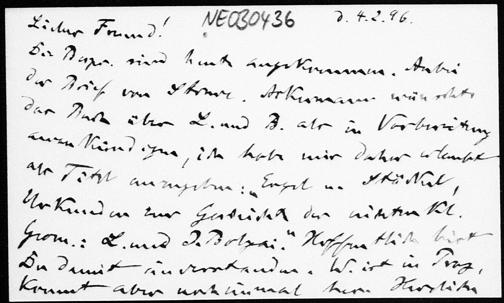 Lieber Freund! NEO30436 d. 4.2.96.
Die Bogen sind heute angekommen. Anbei
der Brief von Stone. Ackermann wünschte
das Buch über L. und B. als in Vorbereitung
anzukündigen, ich habe mir daher erlaubt
als Titel anzugeben: „Engel u. Stäckel,
Urkunden zur Geschichte der nichteukl.
Geom.: L. und J. Bolyai." Hoffentlich bist
Du damit einverstanden. W. ist in Prag,
kommt aber noch einmal her. Herzliche